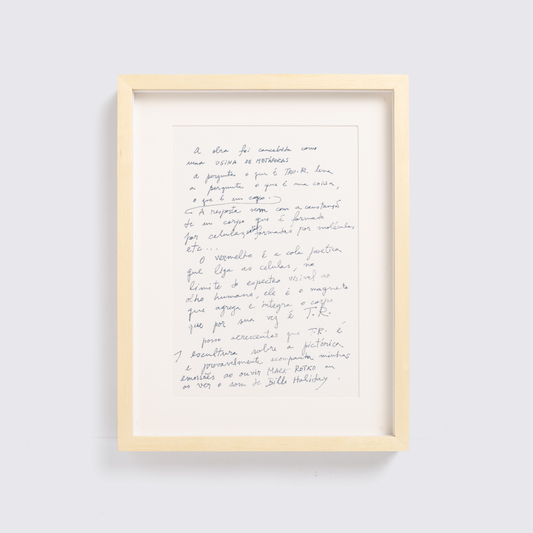 A obra foi concebida como
uma USINA DE METÁFORAS
a pergunta o que é TRU.R. leva
a pergunta o que é uma coisa,
o que é um corpo.
A resposta vem com a constatação
de um corpo que é formado
por células formadas por moléculas
etc...
O vermelho é a cola poética
que liga as células, no
limite do espectro visível ao
olho humano, ele é o magneto
que agrega e integra o corpo
que por sua vez é T.R.
posso acrescentar que T.R. é
escultura sobre a pictórica
e provavelmente acompanha minhas
emoções ao ouvir MARK ROTKO ou
ao ver o som de Bille Holiday.